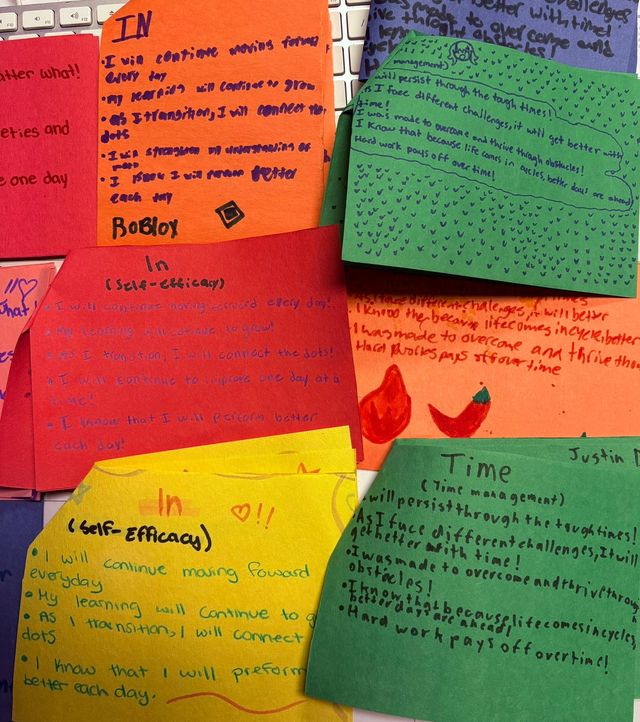 tter what!
eties and
e one day
IN
• I will continue moving forward
every day
• My learning will continue to grow
• As I transition, I will connect the
dots
• I will strengthen my understanding of
• I know I will perform better
each day
ROBlOX
challenges,
better with time!
made to overcome and
through obstacles!
management)
will persist through the tough times!
As I face different challenges, it will get better with
time!
I was made to overcome and thrive through obstacles!
I know that because life comes in cycles, better days are ahead!
Hard work pays off over time!
what!
In
(Self-Efficacy)
• I will continue moving forward every day!
• My learning will continue to grow!
• As I transition, I will connect the dots!
• I will continue to improve one day at a
time!
• I know that I will perform better
each day!
times
As I face different challenges, it will better
I know the because life comes in cycle, better
I was made to overcome and thrive thro
Hard pays off over time
In
(Self-Efficacy)
!!
• I will continue moving foward
everyday
• My learning will continue to g
• As I transition, I will connect
dots
• I know that I will preform
better each day.
Justin
Time
(Time management)
• will persist through the tough times!
As I face different challenges, it will
get better with time!
• I was made to overcome and thrive throu
obstacles!
• I know that because life comes in cycles,
better days are ahead!
• Hard work pays off overtime!